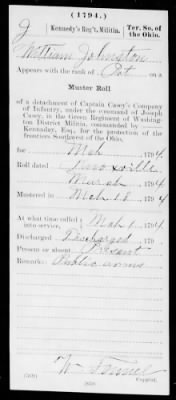 (1794.)
J Kennedy's Reg't, Militia. Ter. So. of the Ohio.
William Johnston
Appears with the rank of Pvt. on a
Muster Roll
of a detachment of Captain Casey's Company
of Infantry, under the command of Joseph
Casey, in the Green Regiment of Washing-
ton District Militia, commanded by
Kennaday, Esq., for the protection of the
frontiers Southwest of the Ohio,
for Mch, 1794.
Roll dated Knoxville
March, 1794
Mustered in Mch 18, 1794
At what time called into service, Mch 1, 1794
Discharged Discharged, 179
Present or absent Present
Remarks: Public arms
W
Copyist.